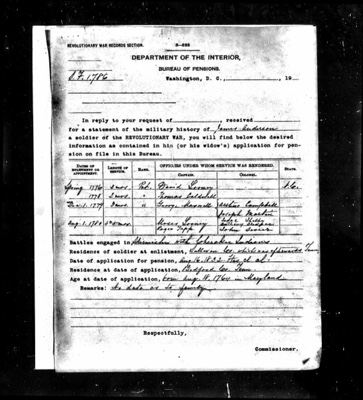 REVOLUTIONARY WAR RECORDS SECTION.
3-525
DEPARTMENT OF THE INTERIOR,
BUREAU OF PENSIONS.
S.F. 1786
Washington, D. C., 19
In reply to your request of received
for a statement of the military history of James Anderson
a soldier of the REVOLUTIONARY WAR, you will find below the desired
information as contained in his (or his widow's) application for pen-
sion on file in this Bureau.
DATES OF ENLISTMENT OR APPOINTMENT. LENGTH OF SERVICE. RANK. OFFICERS UNDER WHOM SERVICE WAS RENDERED. STATE.
CAPTAIN. COLONEL.
Spring 1776 3 mos. Pvt. David Looney
1778 3 mos. " Thomas Caldwell
1779 3 mos. " George Campbell
Joseph Martin
Aug. 1. 1780 Moses Looney
John Sevier
Battles engaged in, Skirmishes with Cherokee Indians
Residence of soldier at enlistment, Sullivan Co. which was afterwards Tenn.
Date of application for pension, Aug.
Residence at date of application, Bedford Co. Tenn.
Age at date of application, born Aug. 1764 in Maryland
Remarks: No data as to family.
Respectfully,
Commissioner.